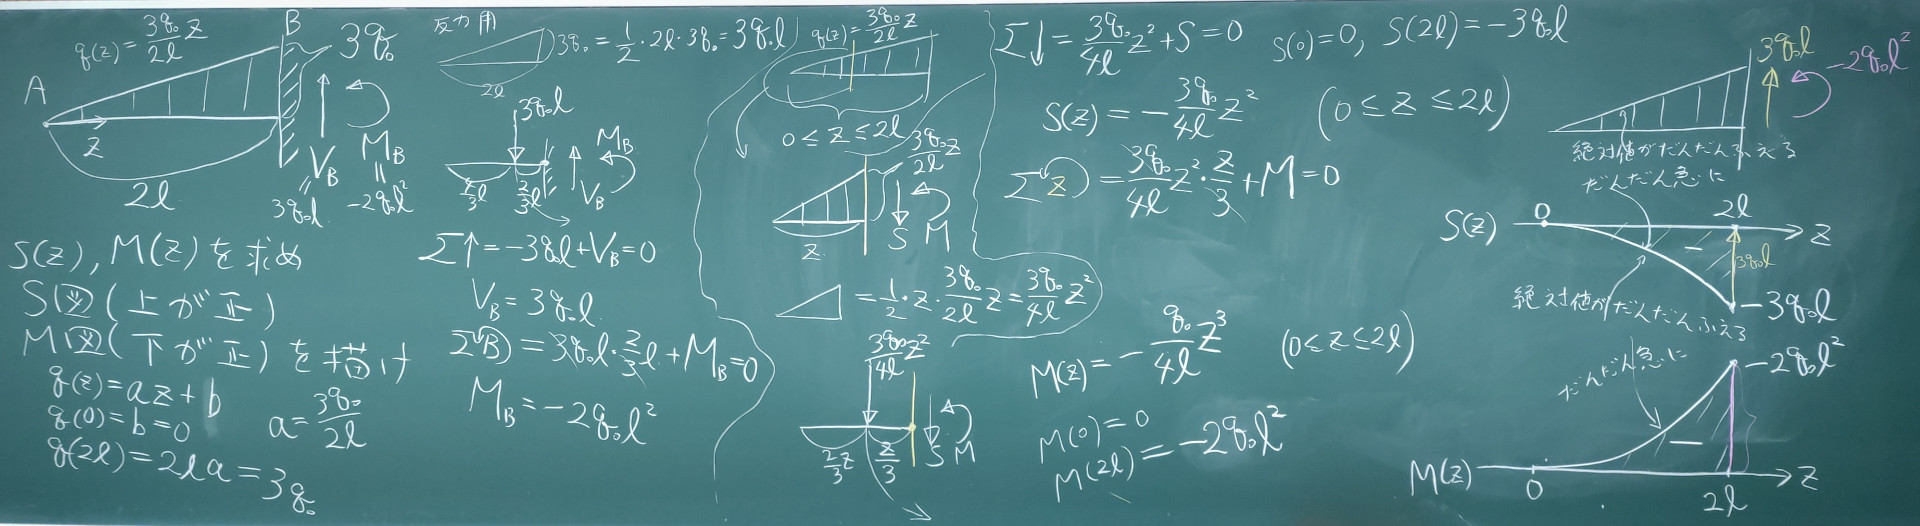 q(z)=3q₀/2l z
B
3q₀
A
z
2l
V_B
M_B
3q₀l
-2q₀l²
S(z), M(z)を求め
S図(上が正)
M図(下が正)を描け
q(z)=az+b
q(0)=b=0
a=3q₀/2l
q(2l)=2la=3q₀
反力用
3q₀=1/2・2l・3q₀=3q₀l
2l
3q₀l
M_B
V_B
4/3l
2/3l
Σ↑=-3q₀l+V_B=0
V_B=3q₀l
ΣB)=3q₀l・2/3l+M_B=0
M_B=-2q₀l²
q(z)=3q₀/2l z
0≤z≤2l
3q₀/2l z
S M
z
=1/2・z・3q₀/2l z=3q₀/4l z²
3q₀/4l z²
2/3z
z/3
S M
Σ↓=3q₀/4l z²+S=0
S(0)=0, S(2l)=-3q₀l
S(z)=-3q₀/4l z² (0≤z≤2l)
Σz)=3q₀/4l z²・z/3+M=0
M(z)=-q₀/4l z³ (0≤z≤2l)
M(0)=0
M(2l)=-2q₀l²
3q₀l
-2q₀l²
絶対値がだんだんふえる
だんだん急に
S(z)
0
2l
z
−
3q₀l
-3q₀l
絶対値がだんだんふえる
だんだん急に
-2q₀l²
−
M(z)
0
2l
z